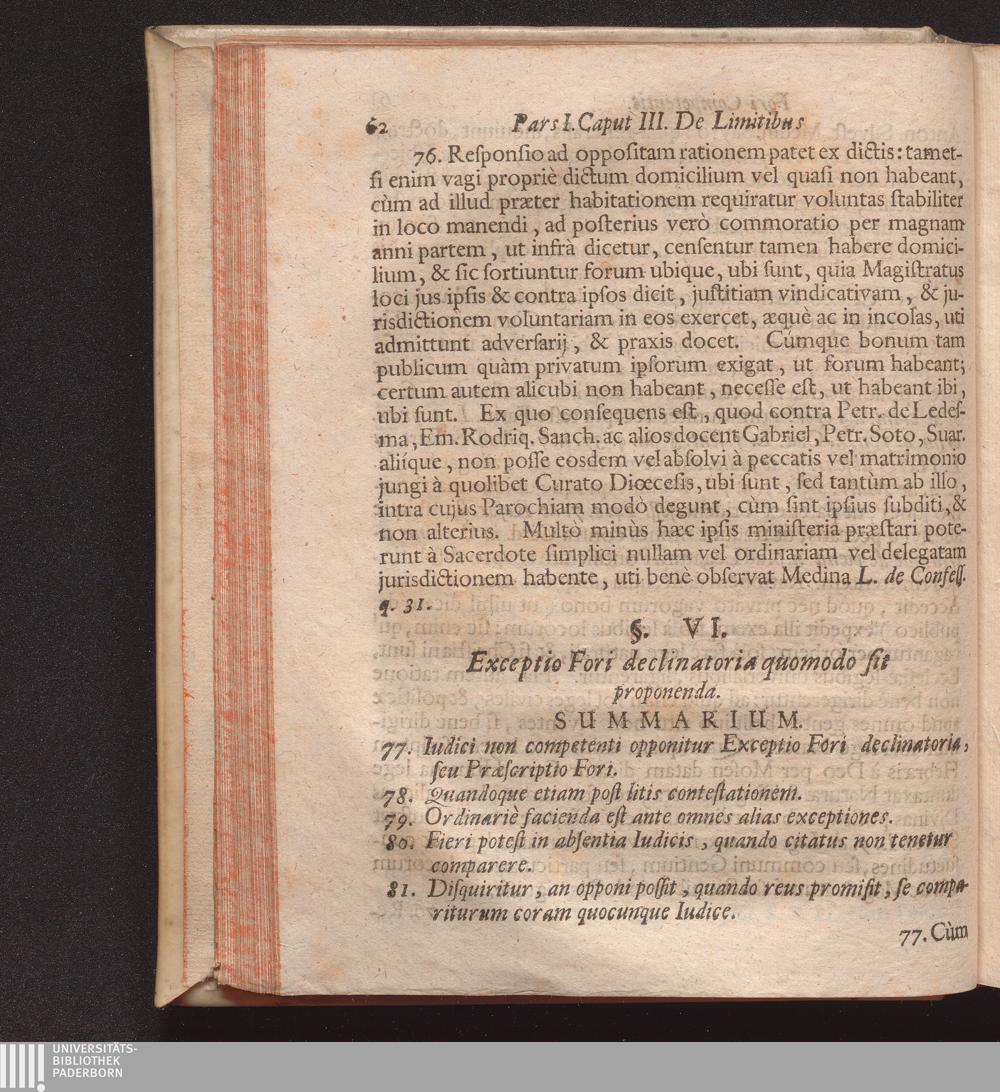 62 Pars I. Caput III. De Limitibus
76. Reſponſio ad oppoſitam rationem patet ex dictis: tamet-
ſi enim vagi propriè dictum domicilium vel quaſi non habeant,
cùm ad illud præter habitationem requiratur voluntas ſtabiliter
in loco manendi, ad poſterius verò commoratio per magnam
anni partem, ut infrà dicetur, cenſentur tamen habere domici-
lium, & ſic ſortiuntur forum ubique, ubi ſunt, quia Magiſtratus
loci jus ipſis & contra ipſos dicit, juſtitiam vindicativam, & ju-
risdictionem voluntariam in eos exercet, æquè ac in incolas, uti
admittunt adverſarij, & praxis docet. Cúmque bonum tam
publicum quàm privatum ipſorum exigat, ut forum habeant;
certum autem alicubi non habeant, neceſſe eſt, ut habeant ibi,
ubi ſunt. Ex quo conſequens eſt, quod contra Petr. de Ledeſ-
ma, Em. Rodriq. Sanch. ac alios docent Gabriel, Petr. Soto, Suar.
aliíque, non poſſe eosdem vel abſolvi à peccatis vel matrimonio
jungi à quolibet Curato Diœceſis, ubi ſunt, ſed tantùm ab illo,
intra cujus Parochiam modò degunt, cùm ſint ipſius ſubditi, &
non alterius. Multò minùs hæc ipſis miniſteria præſtari pote-
runt à Sacerdote ſimplici nullam vel ordinariam vel delegatam
jurisdictionem habente, uti benè obſervat Medina L. de Confeſſ.
q. 31.
§. VI.
Exceptio Fori declinatoria quomodo ſit
proponenda.
SUMMARIUM.
77. Iudici non competenti opponitur Exceptio Fori declinatoria,
ſeu Præſcriptio Fori.
78. Quandoque etiam poſt litis conteſtationem.
79. Ordinariè facienda eſt ante omnes alias exceptiones.
80. Fieri poteſt in abſentia Iudicis, quando citatus non tenetur
comparere.
81. Diſquiritur, an opponi poſſit, quando reus promiſit, ſe compa-
riturum coram quocunque Iudice.
77. Cùm
UNIVERSITÄTS-
BIBLIOTHEK
PADERBORN